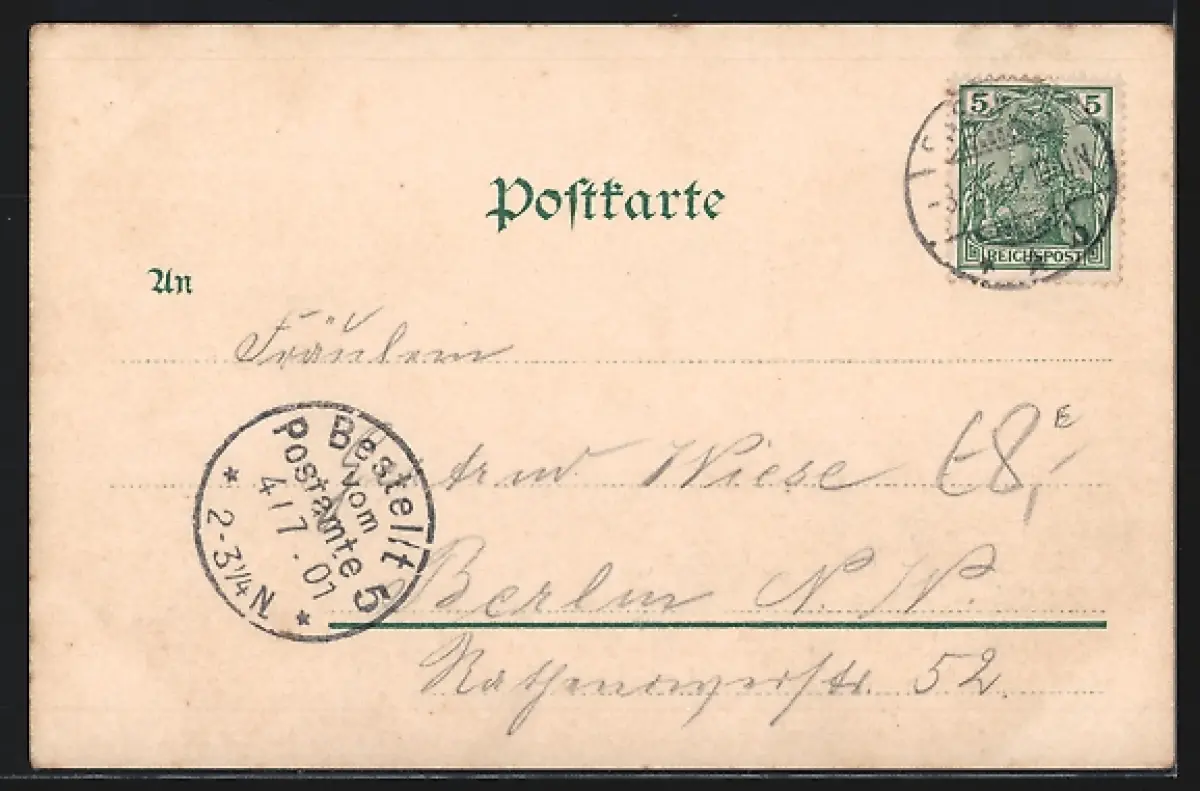 5 5
REICHSPOST
Postkarte
An
Fräulein
Wiese
Bestellt
vom
Postamte 5
4/7.01
2-3¼N
Berlin N.W.
Rathenowerstr. 52